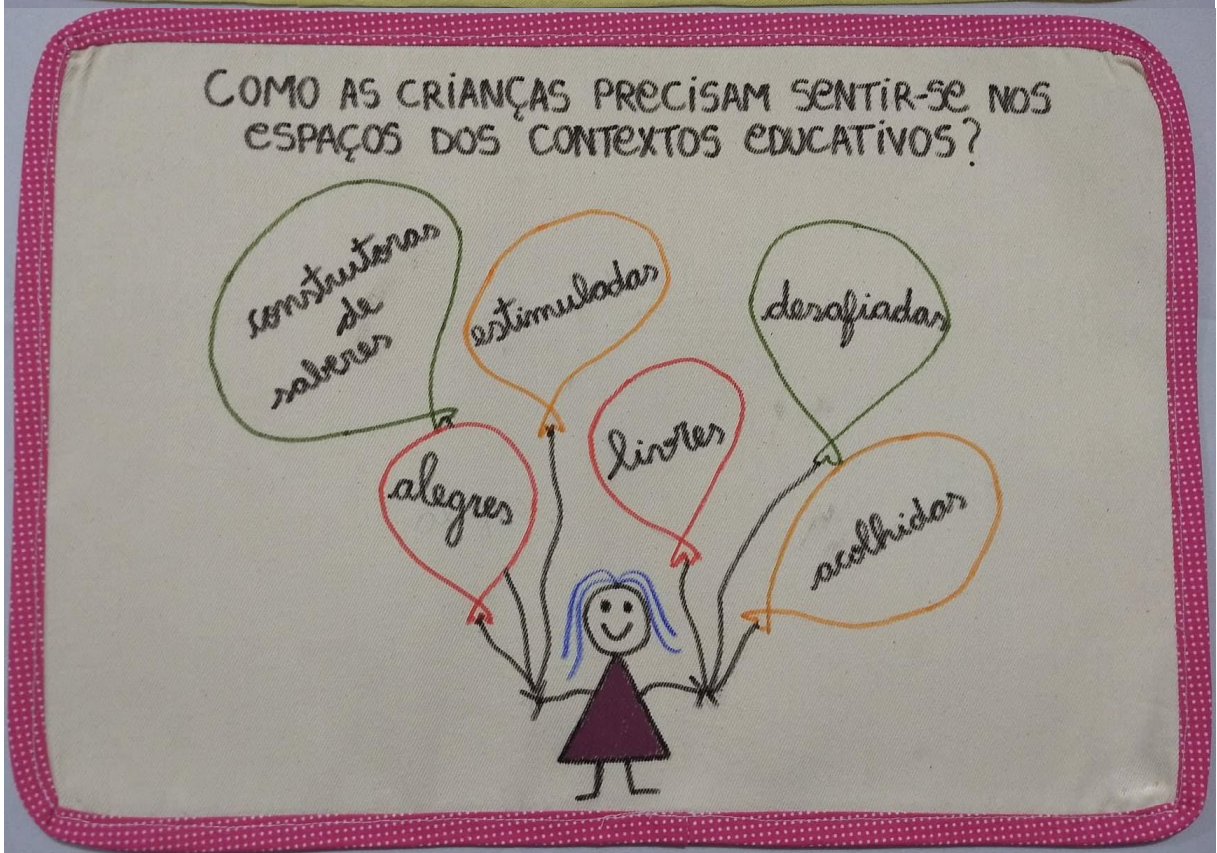 COMO AS CRIANÇAS PRECISAM SENTIR-SE NOS
ESPAÇOS DOS CONTEXTOS EDUCATIVOS?
construtoras
de
saberes
estimuladas
desafiadas
alegres
livres
acolhidas